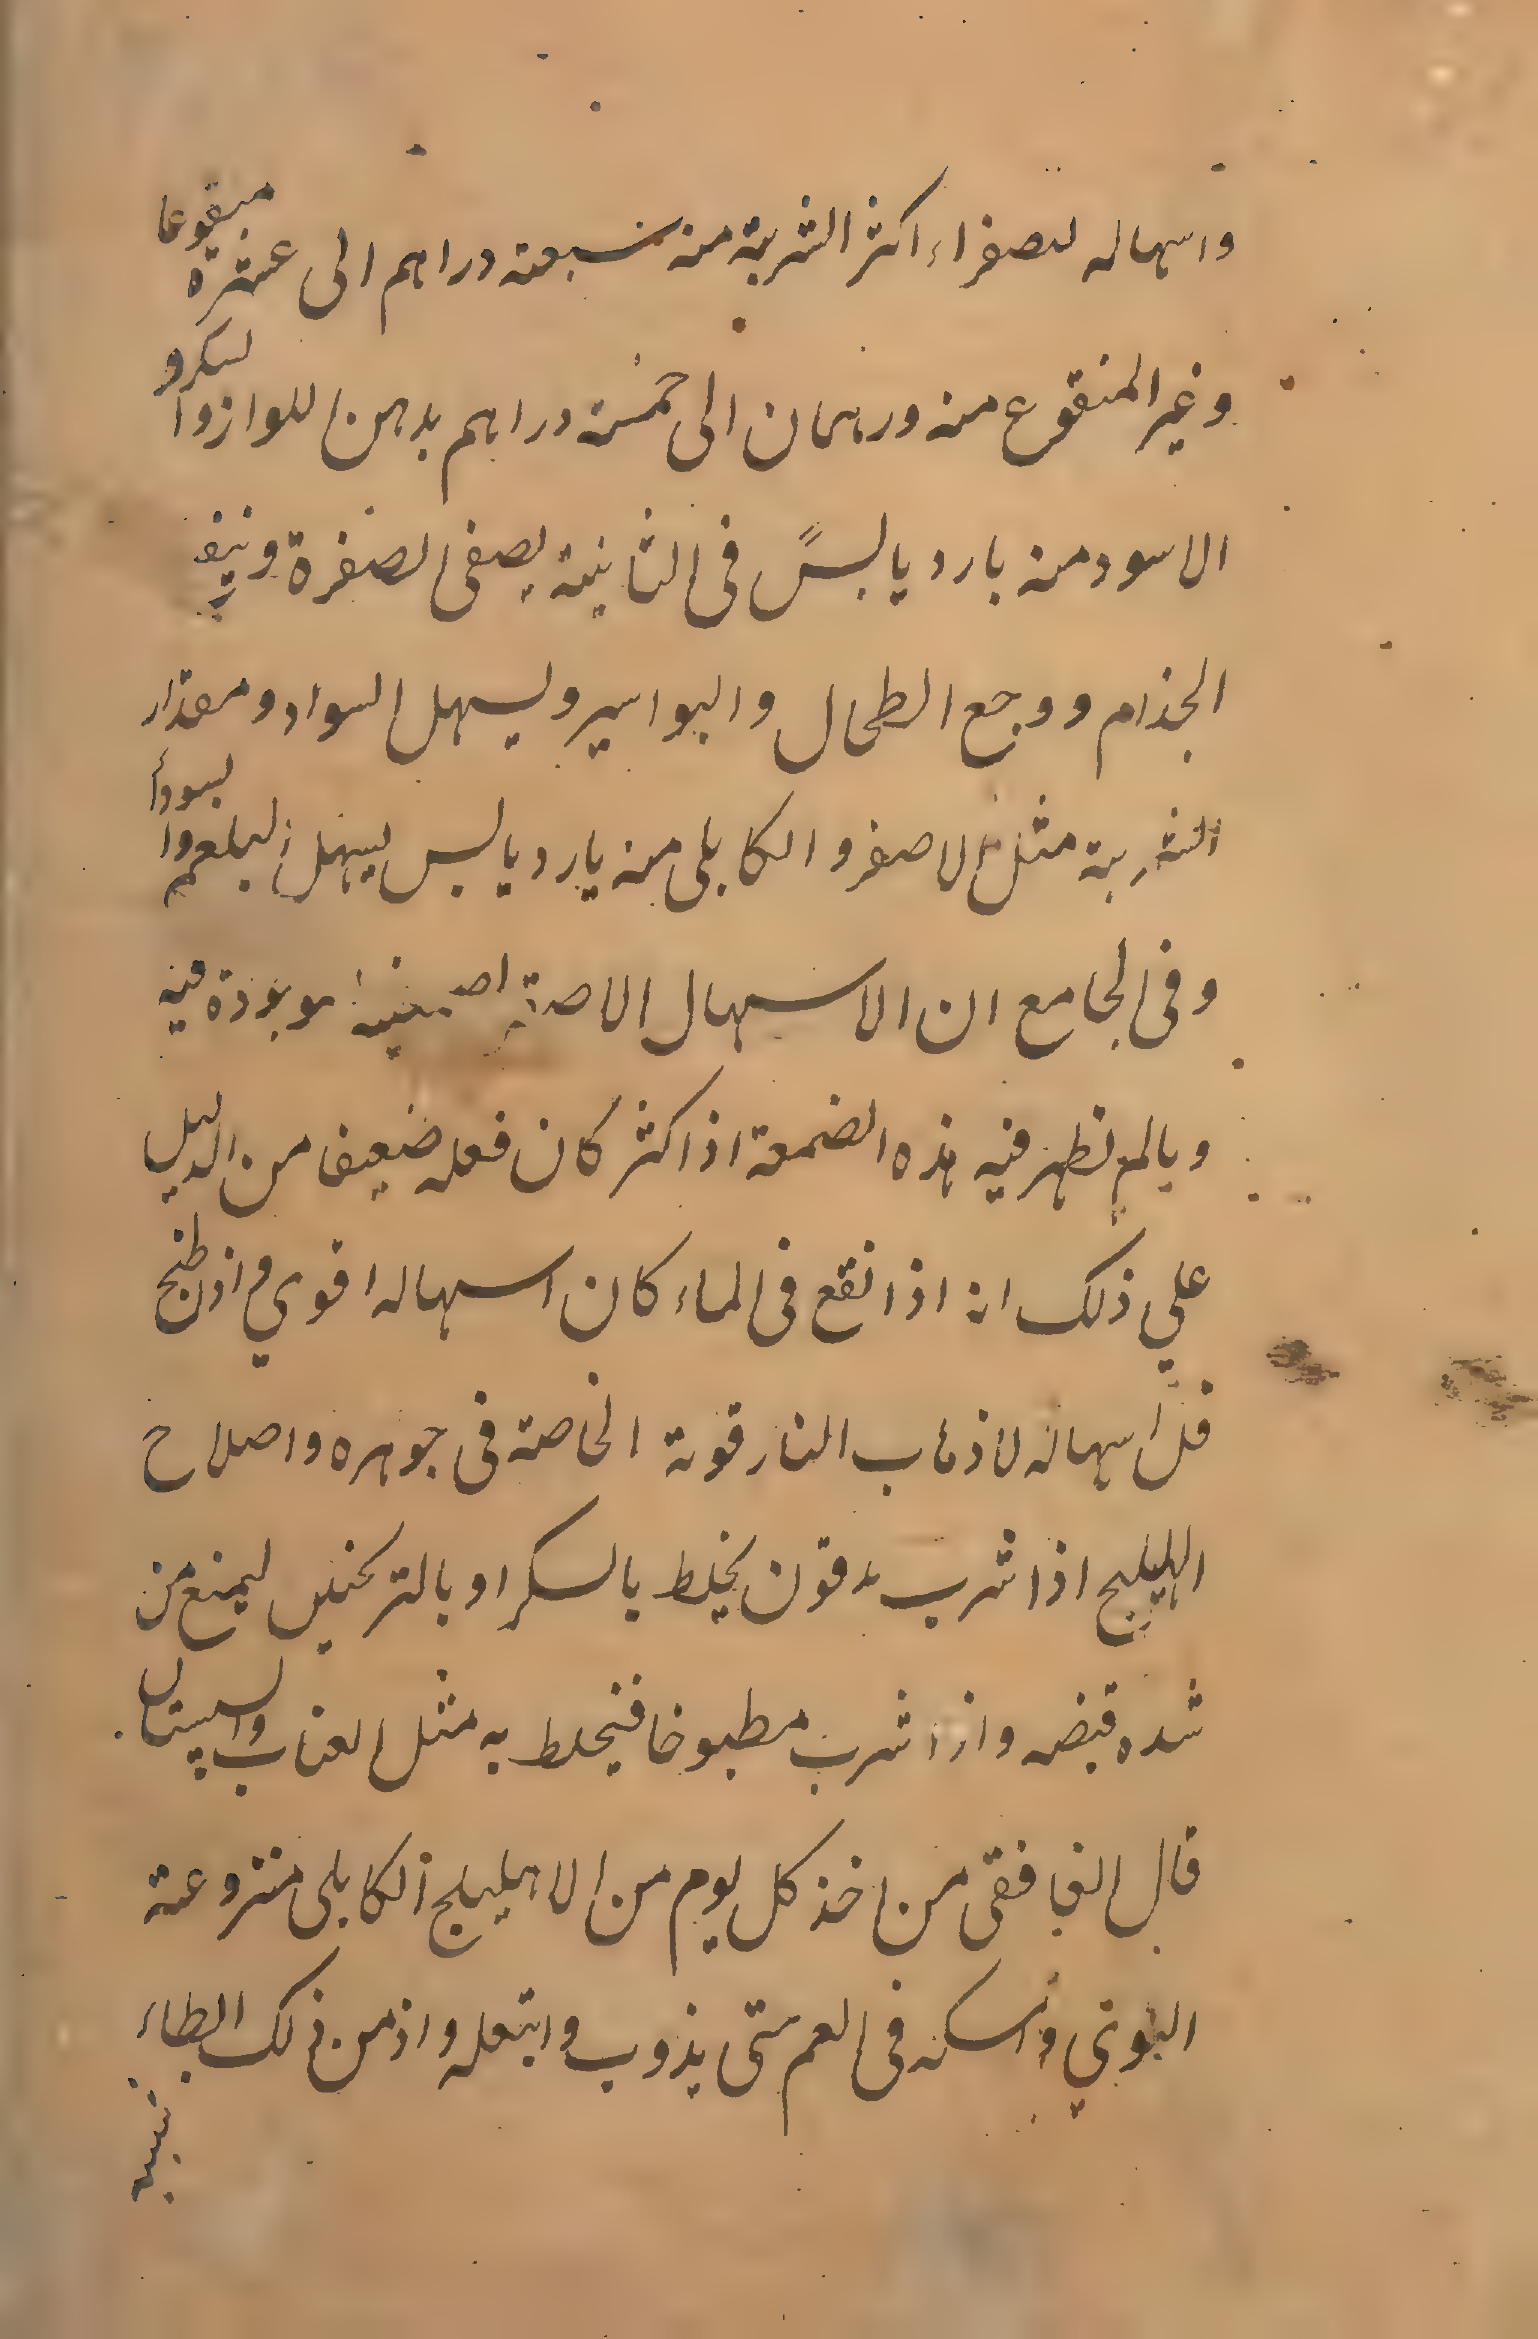 واسهاله للصفراء اكثر الشربة منه سبعة دراهم الى عشرة منقوعا
وغير المنقوع منه درهمان الى خمسة دراهم بدهن اللوز او السكر و
الاسود منه بارد يابس في الثانية يصفى الصفرة وينفع
الجذام ووجع الطحال والبواسير ويسهل السواد ومقدار
الشربة مثل الاصفر والكابلى منه بارد يابس يسهل البلغم والسودأ
وفى الجامع ان الاسهال موجودة فيه
وبالم تظهر فيه هذه الضمعة اذا كثر كان فعله ضعيفا من الدليل
علي ذلك انه اذا نقع فى الماء كان اسهاله اقوي واذا طبخ
قل اسهاله لاذهاب النار قوته الخاصة فى جوهره واصلاح
الهليلج اذا شرب مدقوق يخلط بالسكر او بالترنجبين ليمنع من
شده قبضه واذا شرب مطبوخا فيخلط به مثل العناب والسپستان
قال الغافقى من اخذ كل يوم من الاهليلج الكابلى منزوعة
النوي وامسكه فى الفم حتى يذوب وابتعله واذمن ذلك ابطاء